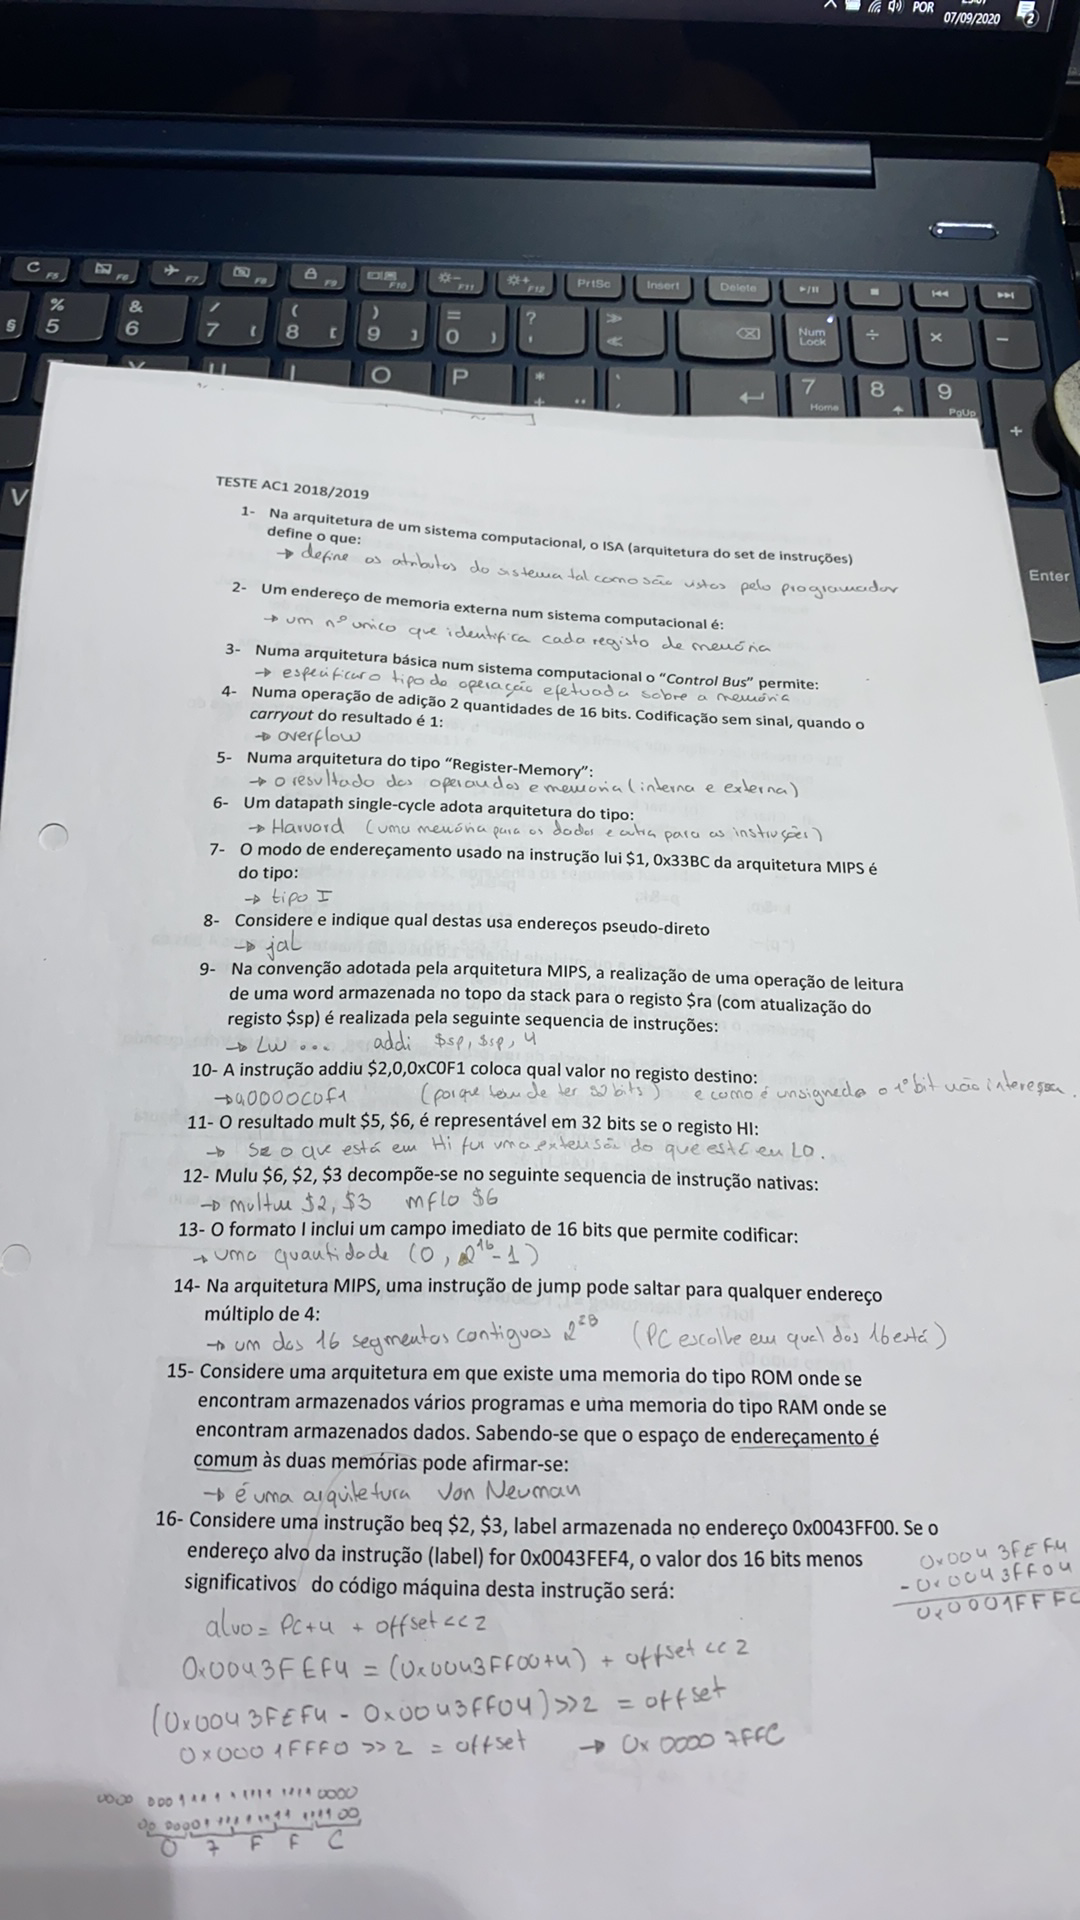 POR
07/09/2020
2
F5 F6 F7 F8 F9 F10 F11 F12 PrtSc Insert Delete
§ % 5 & 6 / 7 { ( 8 [ ) 9 ] = 0 } ? ' Num Lock ÷ × -
O P * + 7 Home 8 9 PgUp +
V
Enter
TESTE AC1 2018/2019
1- Na arquitetura de um sistema computacional, o ISA (arquitetura do set de instruções)
define o que:
→ define os atributos do sistema tal como são vistos pelo programador
2- Um endereço de memoria externa num sistema computacional é:
→ um nº unico que identifica cada registo de memória
3- Numa arquitetura básica num sistema computacional o "Control Bus" permite:
→ especificar o tipo de operação efetuada sobre a memória
4- Numa operação de adição 2 quantidades de 16 bits. Codificação sem sinal, quando o
carryout do resultado é 1:
→ overflow
5- Numa arquitetura do tipo "Register-Memory":
→ o resultado dos operandos e memória (interna e externa)
6- Um datapath single-cycle adota arquitetura do tipo:
→ Harvard (uma memória para os dados e outra para as instruções)
7- O modo de endereçamento usado na instrução lui $1, 0x33BC da arquitetura MIPS é
do tipo:
→ tipo I
8- Considere e indique qual destas usa endereços pseudo-direto
→ jal
9- Na convenção adotada pela arquitetura MIPS, a realização de uma operação de leitura
de uma word armazenada no topo da stack para o registo $ra (com atualização do
registo $sp) é realizada pela seguinte sequencia de instruções:
→ LW ... addi $sp, $sp, 4
10- A instrução addiu $2,0,0xC0F1 coloca qual valor no registo destino:
→ 0x0000C0F1 (porque tem de ter 32 bits) e como é unsigned o 1º bit não interessa.
11- O resultado mult $5, $6, é representável em 32 bits se o registo HI:
→ Se o que está em Hi for uma extensão do que está em LO.
12- Mulu $6, $2, $3 decompõe-se no seguinte sequencia de instrução nativas:
→ multu $2, $3 mflo $6
13- O formato I inclui um campo imediato de 16 bits que permite codificar:
→ uma quantidade (0, 2^16-1)
14- Na arquitetura MIPS, uma instrução de jump pode saltar para qualquer endereço
múltiplo de 4:
→ um dos 16 segmentos contiguos 2^28 (PC escolhe em qual dos 16 está)
15- Considere uma arquitetura em que existe uma memoria do tipo ROM onde se
encontram armazenados vários programas e uma memoria do tipo RAM onde se
encontram armazenados dados. Sabendo-se que o espaço de endereçamento é
comum às duas memórias pode afirmar-se:
→ é uma arquitetura Von Neuman
16- Considere uma instrução beq $2, $3, label armazenada no endereço 0x0043FF00. Se o
endereço alvo da instrução (label) for 0x0043FEF4, o valor dos 16 bits menos
significativos do código máquina desta instrução será:
0x0043FEF4
- 0x0043FF04
0x0001FFF0
alvo = PC+4 + offset << 2
0x0043FEF4 = (0x0043FF00+4) + offset << 2
(0x0043FEF4 - 0x0043FF04) >> 2 = offset
0x0001FFF0 >> 2 = offset → 0x00007FFC
0000 0001 1111 1111 1111 0000
00 00001 1111 1111 1111 00
0 7 F F C